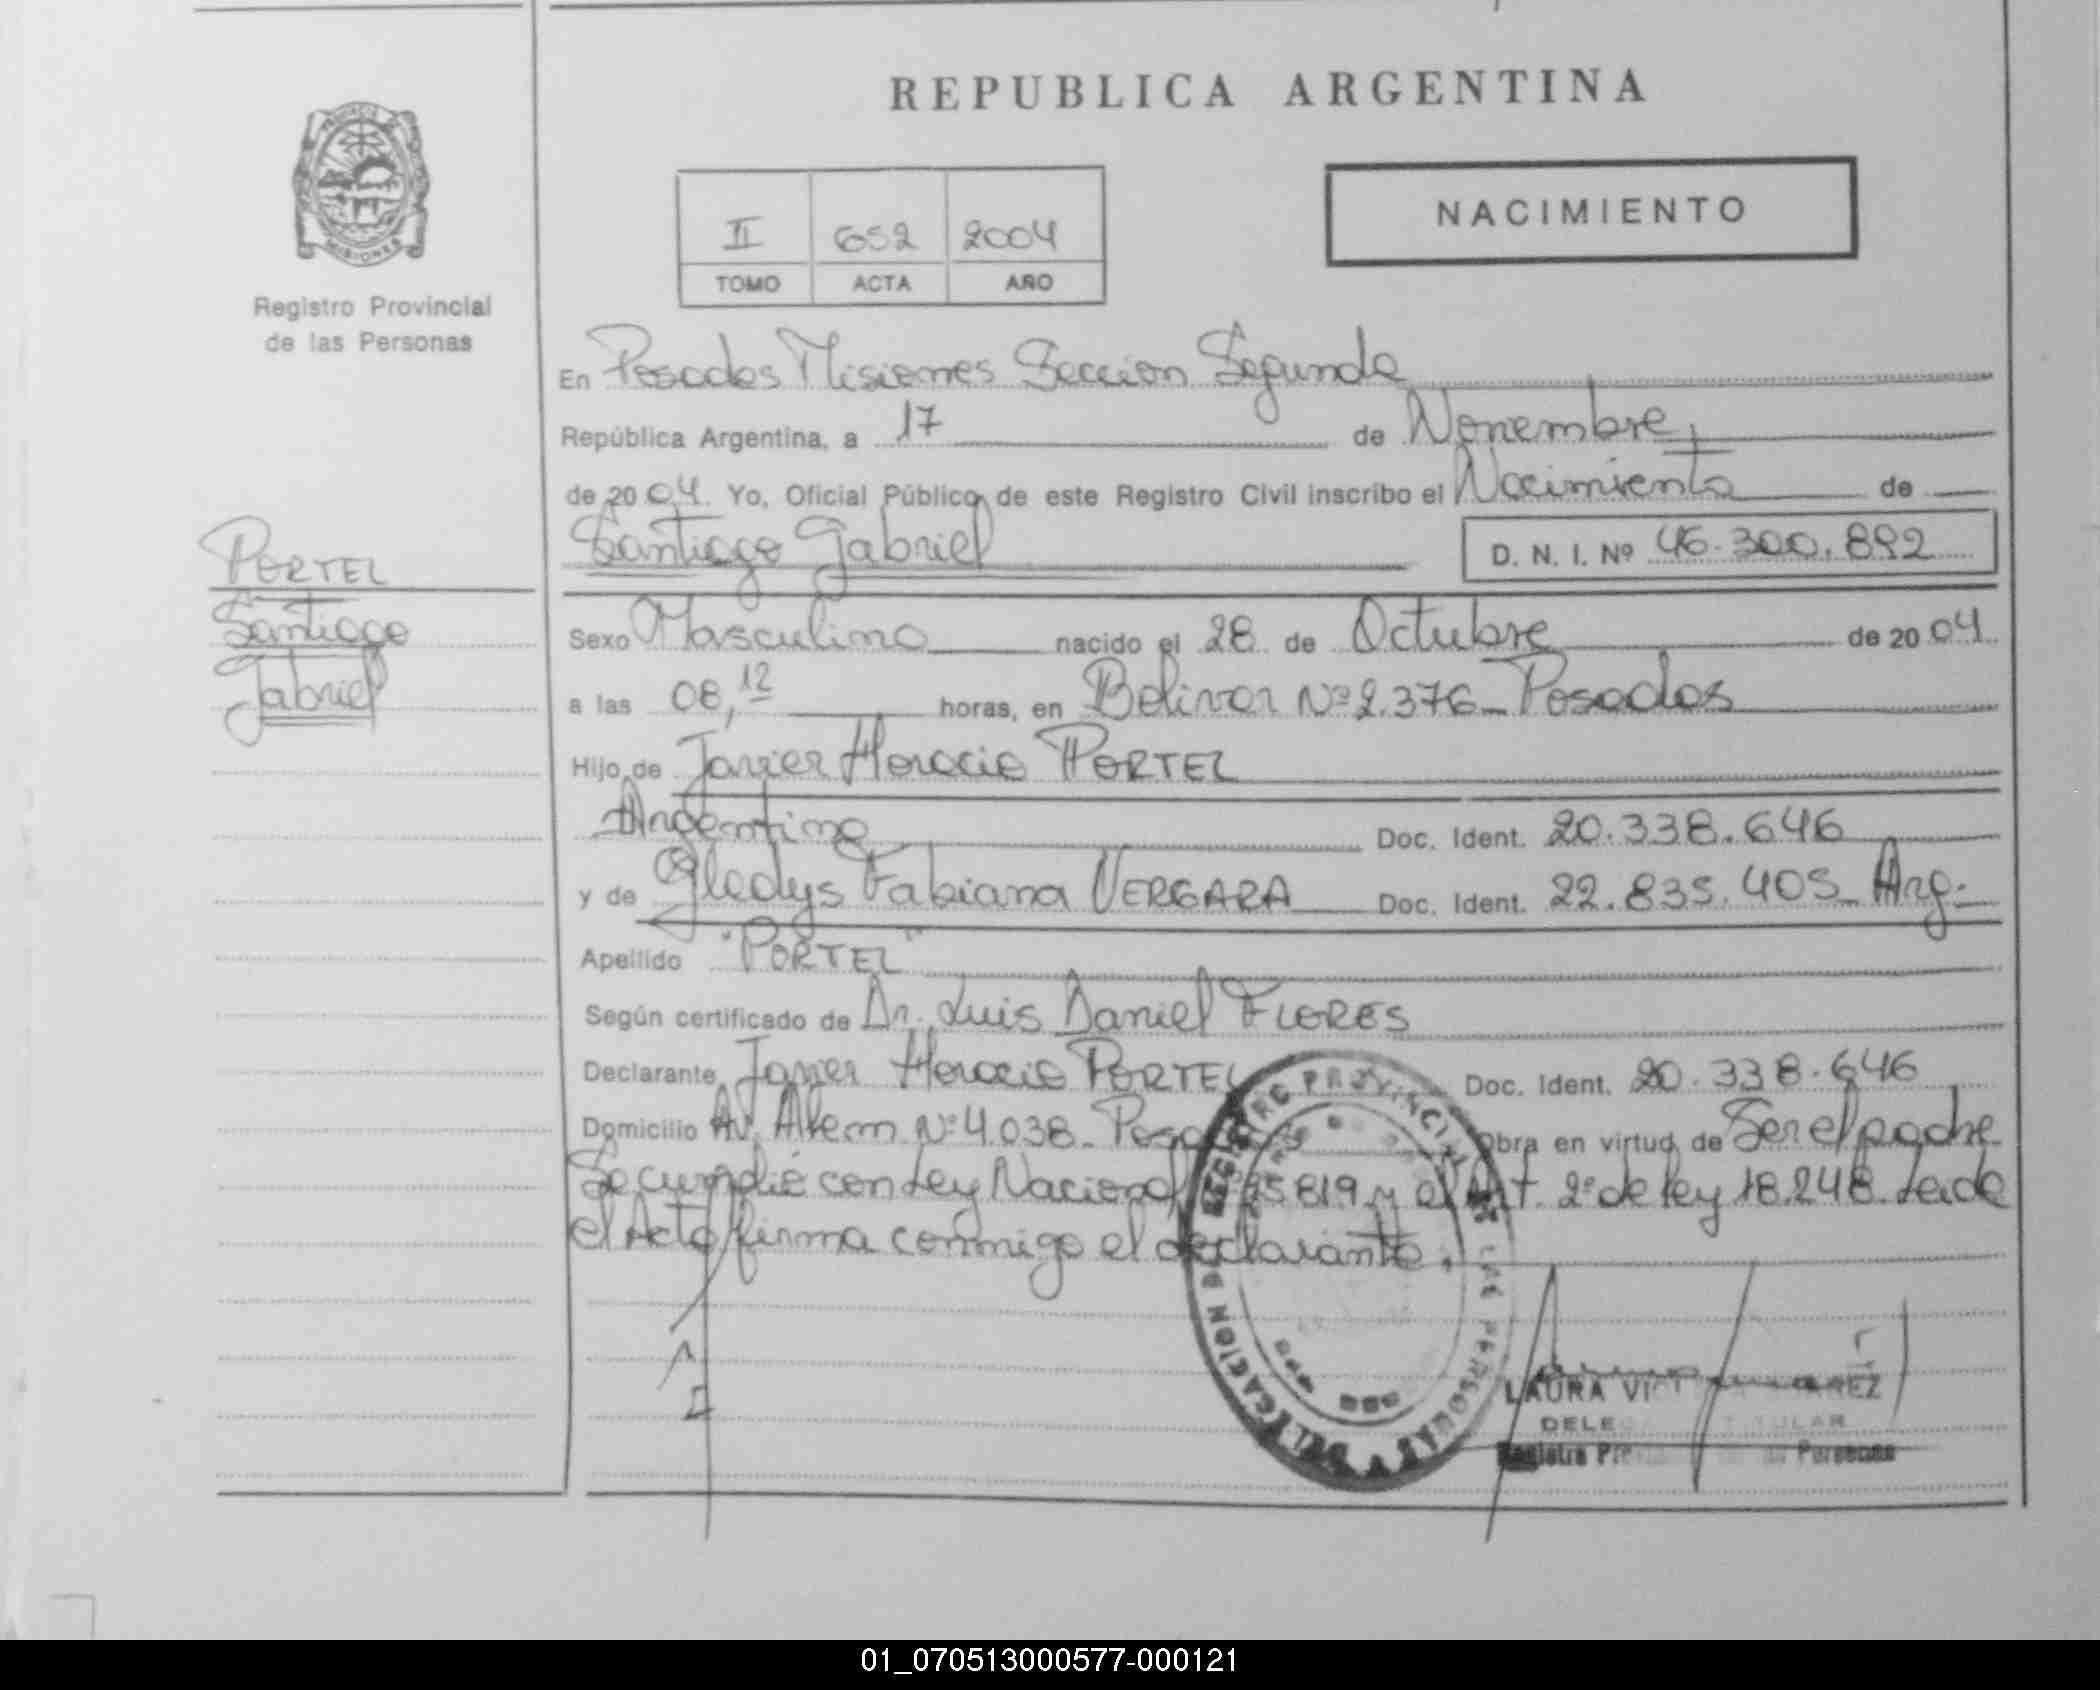 REPUBLICA ARGENTINA
PROVINCIA DE MISIONES
Registro Provincial
de las Personas
II 652 2004
TOMO ACTA AÑO
NACIMIENTO
En Posadas Misiones Seccion Segunda
República Argentina, a 17 de Noviembre,
de 2004. Yo, Oficial Público de este Registro Civil inscribo el Nacimiento de
Santiago Gabriel D. N. I. Nº 46.300.892
PORTEL
Santiago
Gabriel
Sexo Masculino nacido el 28 de Octubre de 2004
a las 08,12 horas, en Bolivar Nº 2.376 - Posadas
Hijo de Javier Horacio PORTEL
Argentino Doc. Ident. 20.338.646
y de Gladys Fabiana VERGARA Doc. Ident. 22.835.405 - Arg.
Apellido "PORTEL"
Según certificado de Dr. Luis Daniel FLORES
Declarante Javier Horacio PORTEL Doc. Ident. 20.338.646
Domicilio Av. Alem Nº 4.038 - Obra en virtud de Ser el padre
Se cumplió con Ley Nacional 25819 y el Art. 2º de ley 18.248. Leida
el Acta firma conmigo el declarante.
REGISTRO PROVINCIAL DE LAS PERSONAS
DELEGACION
LAURA
Registro Personas
01_070513000577-000121